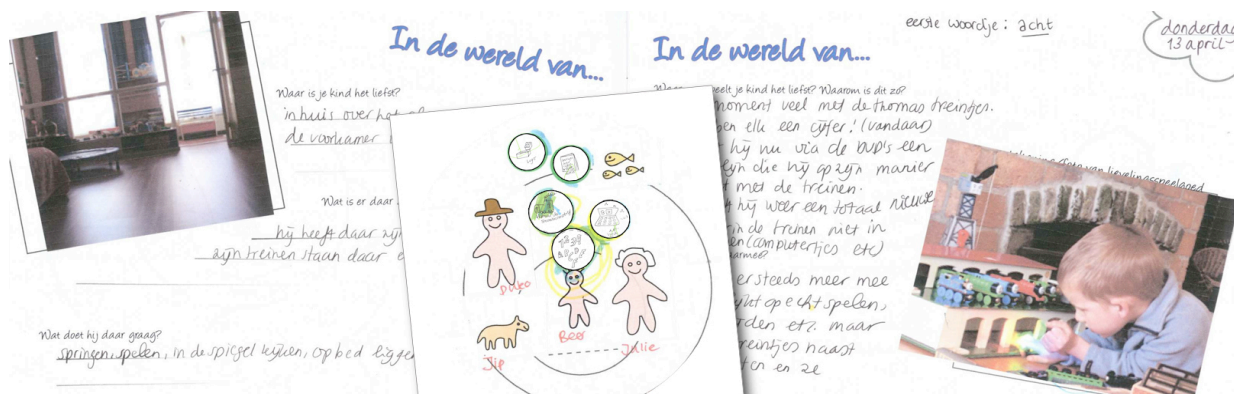 In de wereld van...
Waar is je kind het liefst?
in huis over het
de voorkamer
Wat is er daar
hij heeft daar zijn
zijn treinen staan daar
Wat doet hij daar graag?
springen, spelen, in de spiegel kijken, op bed liggen
Duko
Beer
Julie
Jip
eerste woordje : acht
donderdag
13 april
In de wereld van...
eelt je kind het liefst? Waarom is dit zo?
moment veel met de thomas treintjes.
en elk een cijfer! (vandaar)
hij nu via de DVD's een
ijn die hij op zijn manier
met de treinen.
hij weer een totaal nieuwe
in de treinen niet in
en (computertjes etc)
armee?
er steeds meer mee
kt op echt spelen,
rden etz. maar
reintjes naast
en ze
van lievelingsspeelgoed